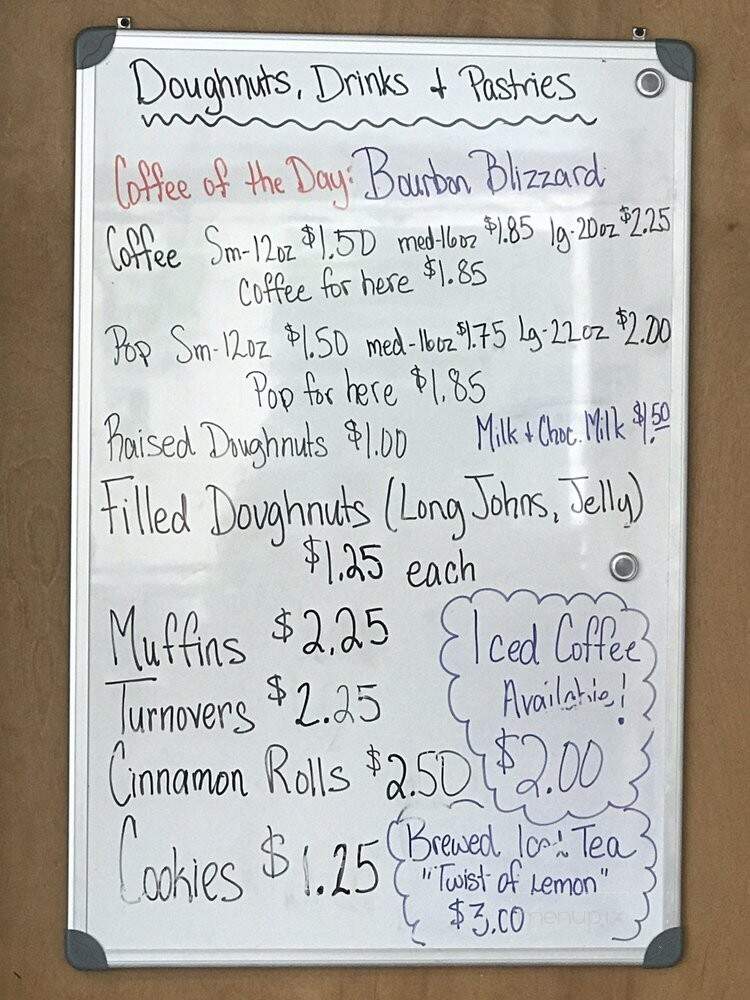 Doughnuts, Drinks + Pastries
Coffee of the Day: Bourbon Blizzard
Coffee Sm-12oz $1.50 med-16oz $1.85 lg-20oz $2.25
Coffee for here $1.85
Pop Sm-12oz $1.50 med-16oz $1.75 Lg-22oz $2.00
Pop for here $1.85
Raised Doughnuts $1.00
Milk + Choc. Milk $1.50
Filled Doughnuts (Long Johns, Jelly)
$1.25 each
Muffins $2.25
Turnovers $2.25
Cinnamon Rolls $2.50
Cookies $1.25
Iced Coffee
Available!
$2.00
Brewed Tea
"Twist of Lemon"
$3.00